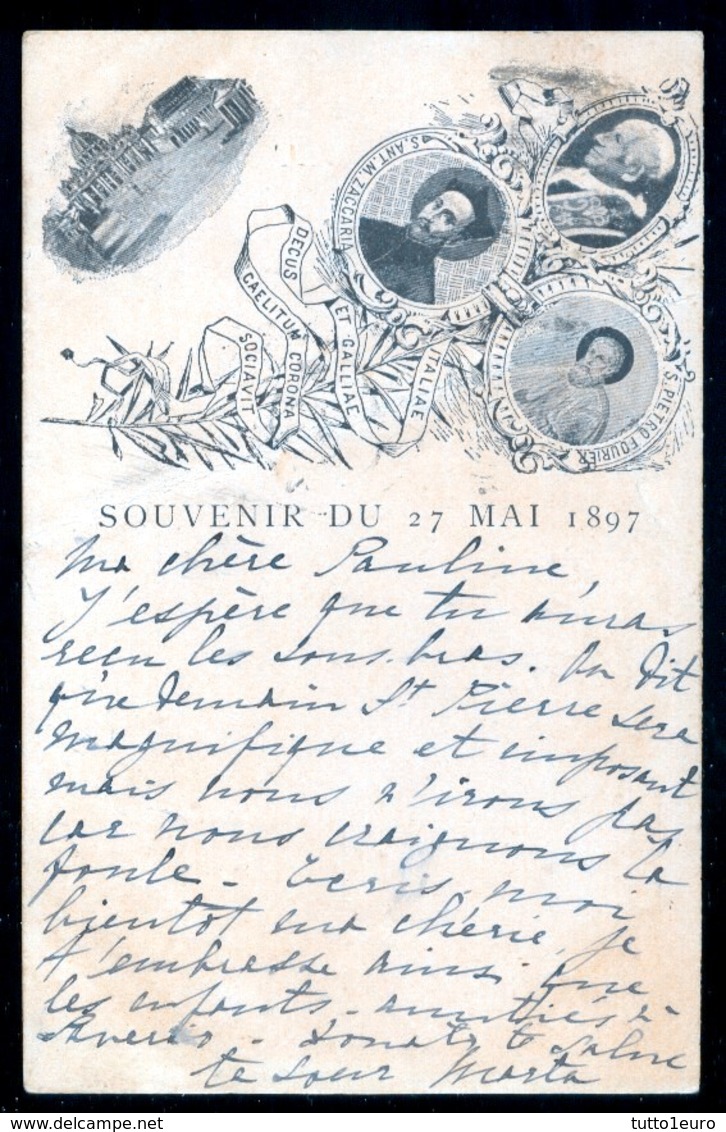 S. ANT. M. ZACCARIA
DECUS
CAELITUM CORONA
SOCIAVIT
ET GALLIAE
ITALIAE
S. PIETRO FOURIER
SOUVENIR DU 27 MAI 1897
Ma chère Pauline,
J'espère que tu auras
reçu les sous-bras. On dit
que demain St Pierre sera
magnifique et imposant
mais nous n'irons pas
car nous craignons la
foule - Ecris-moi
bientot ma chérie, je
t'embrasse ainsi que
les enfants - amitiés à
Saverio - Donato te salue
ta soeur Marta
tutto1euro